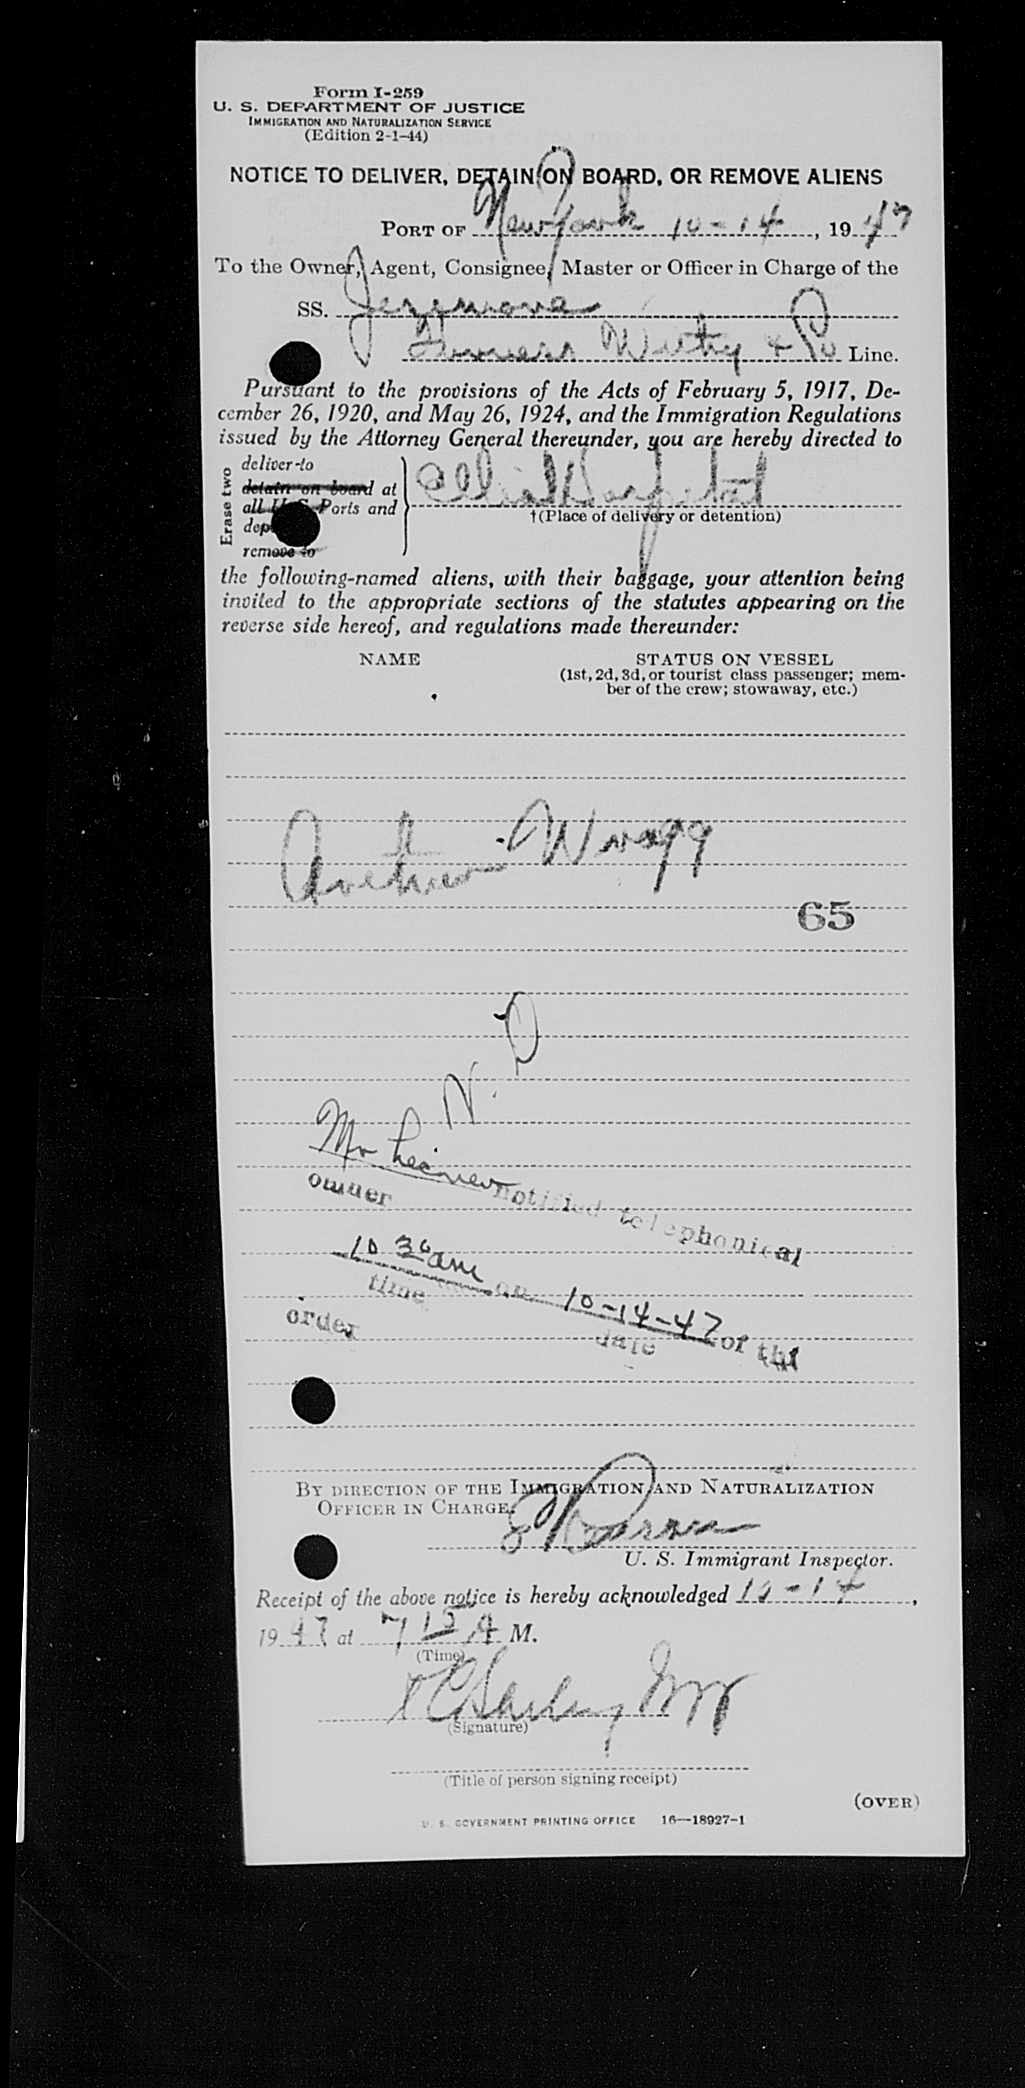 Form I-259
U. S. DEPARTMENT OF JUSTICE
IMMIGRATION AND NATURALIZATION SERVICE
(Edition 2-1-44)
NOTICE TO DELIVER, DETAIN ON BOARD, OR REMOVE ALIENS
PORT OF New York 10-14, 1947
To the Owner, Agent, Consignee, Master or Officer in Charge of the
SS.
Furness Withy & Co Line.
Pursuant to the provisions of the Acts of February 5, 1917, De-
cember 26, 1920, and May 26, 1924, and the Immigration Regulations
issued by the Attorney General thereunder, you are hereby directed to
Erase two
deliver to
detain on board at
all U. S. Ports and
remove to
Ellis Hospital
†(Place of delivery or detention)
the following-named aliens, with their baggage, your attention being
invited to the appropriate sections of the statutes appearing on the
reverse side hereof, and regulations made thereunder:
NAME STATUS ON VESSEL
(1st, 2d, 3d, or tourist class passenger; mem-
ber of the crew; stowaway, etc.)
Arthur Wragg
65
Mr notified telephonical
owner
10 30 am on 10-14-47 of the
time date
order
BY DIRECTION OF THE IMMIGRATION AND NATURALIZATION
OFFICER IN CHARGE.
U. S. Immigrant Inspector.
Receipt of the above notice is hereby acknowledged 10-14,
1947 at 7 15 A M.
(Time)
(Signature)
(Title of person signing receipt)
(OVER)
U. S. GOVERNMENT PRINTING OFFICE 16—18927-1